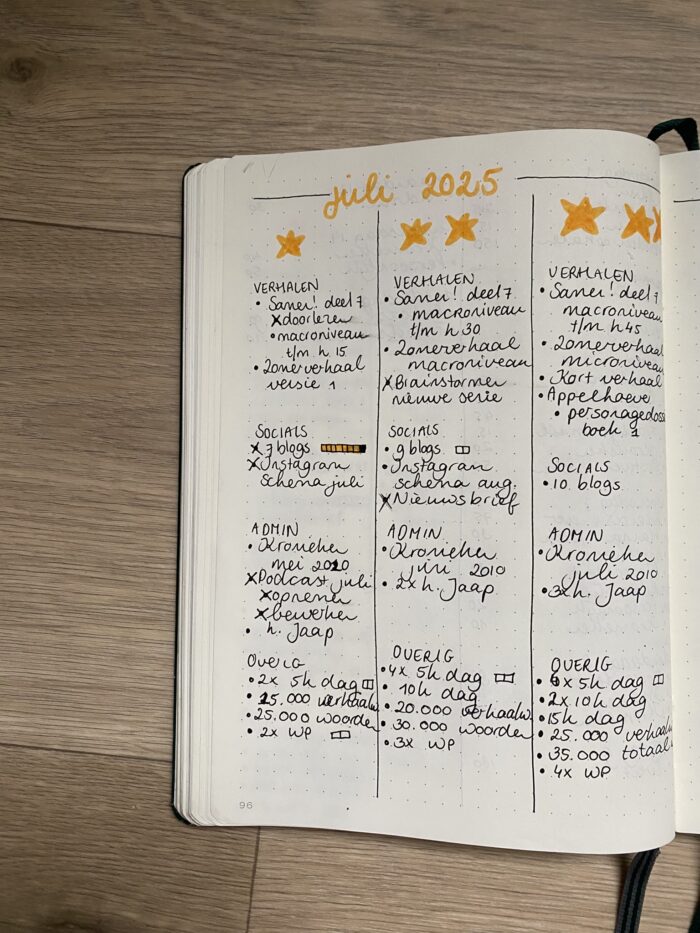 juli 2025
VERHALEN
• Samen! deel 7
x doorlezen
• macroniveau
t/m h 15
• Zomerverhaal
versie 1
SOCIALS
x 7 blogs
x Instagram
schema juli
ADMIN
• Kronieken
mei 2010
x Podcast juli
x opnemen
x bewerken
• h. Jaap
OVERIG
• 2x 5h dag
• 15.000 verhaalw.
• 25.000 woorden
• 2x WP
VERHALEN
• Samen! deel 7
• macroniveau
t/m h 30
• Zomerverhaal
macroniveau
x Brainstormen
nieuwe serie
SOCIALS
• 9 blogs
• Instagram
schema aug.
x Nieuwsbrief
ADMIN
• Kronieken
juni 2010
• 2x h. Jaap
OVERIG
• 4x 5h dag
• 10h dag
• 20.000 verhaalw.
• 30.000 woorden
• 3x WP
VERHALEN
• Samen! deel 7
macroniveau
t/m h 45
• Zomerverhaal
microniveau
• Kort verhaal
• Appelhoeve
• personagedoss
boek 1
SOCIALS
• 10 blogs
ADMIN
• Kronieken
juli 2010
• 3x h. Jaap
OVERIG
• 6x 5h dag
• 2x 10h dag
• 15h dag
• 25.000 verhaalw
• 35.000 totaal
• 4x WP
96